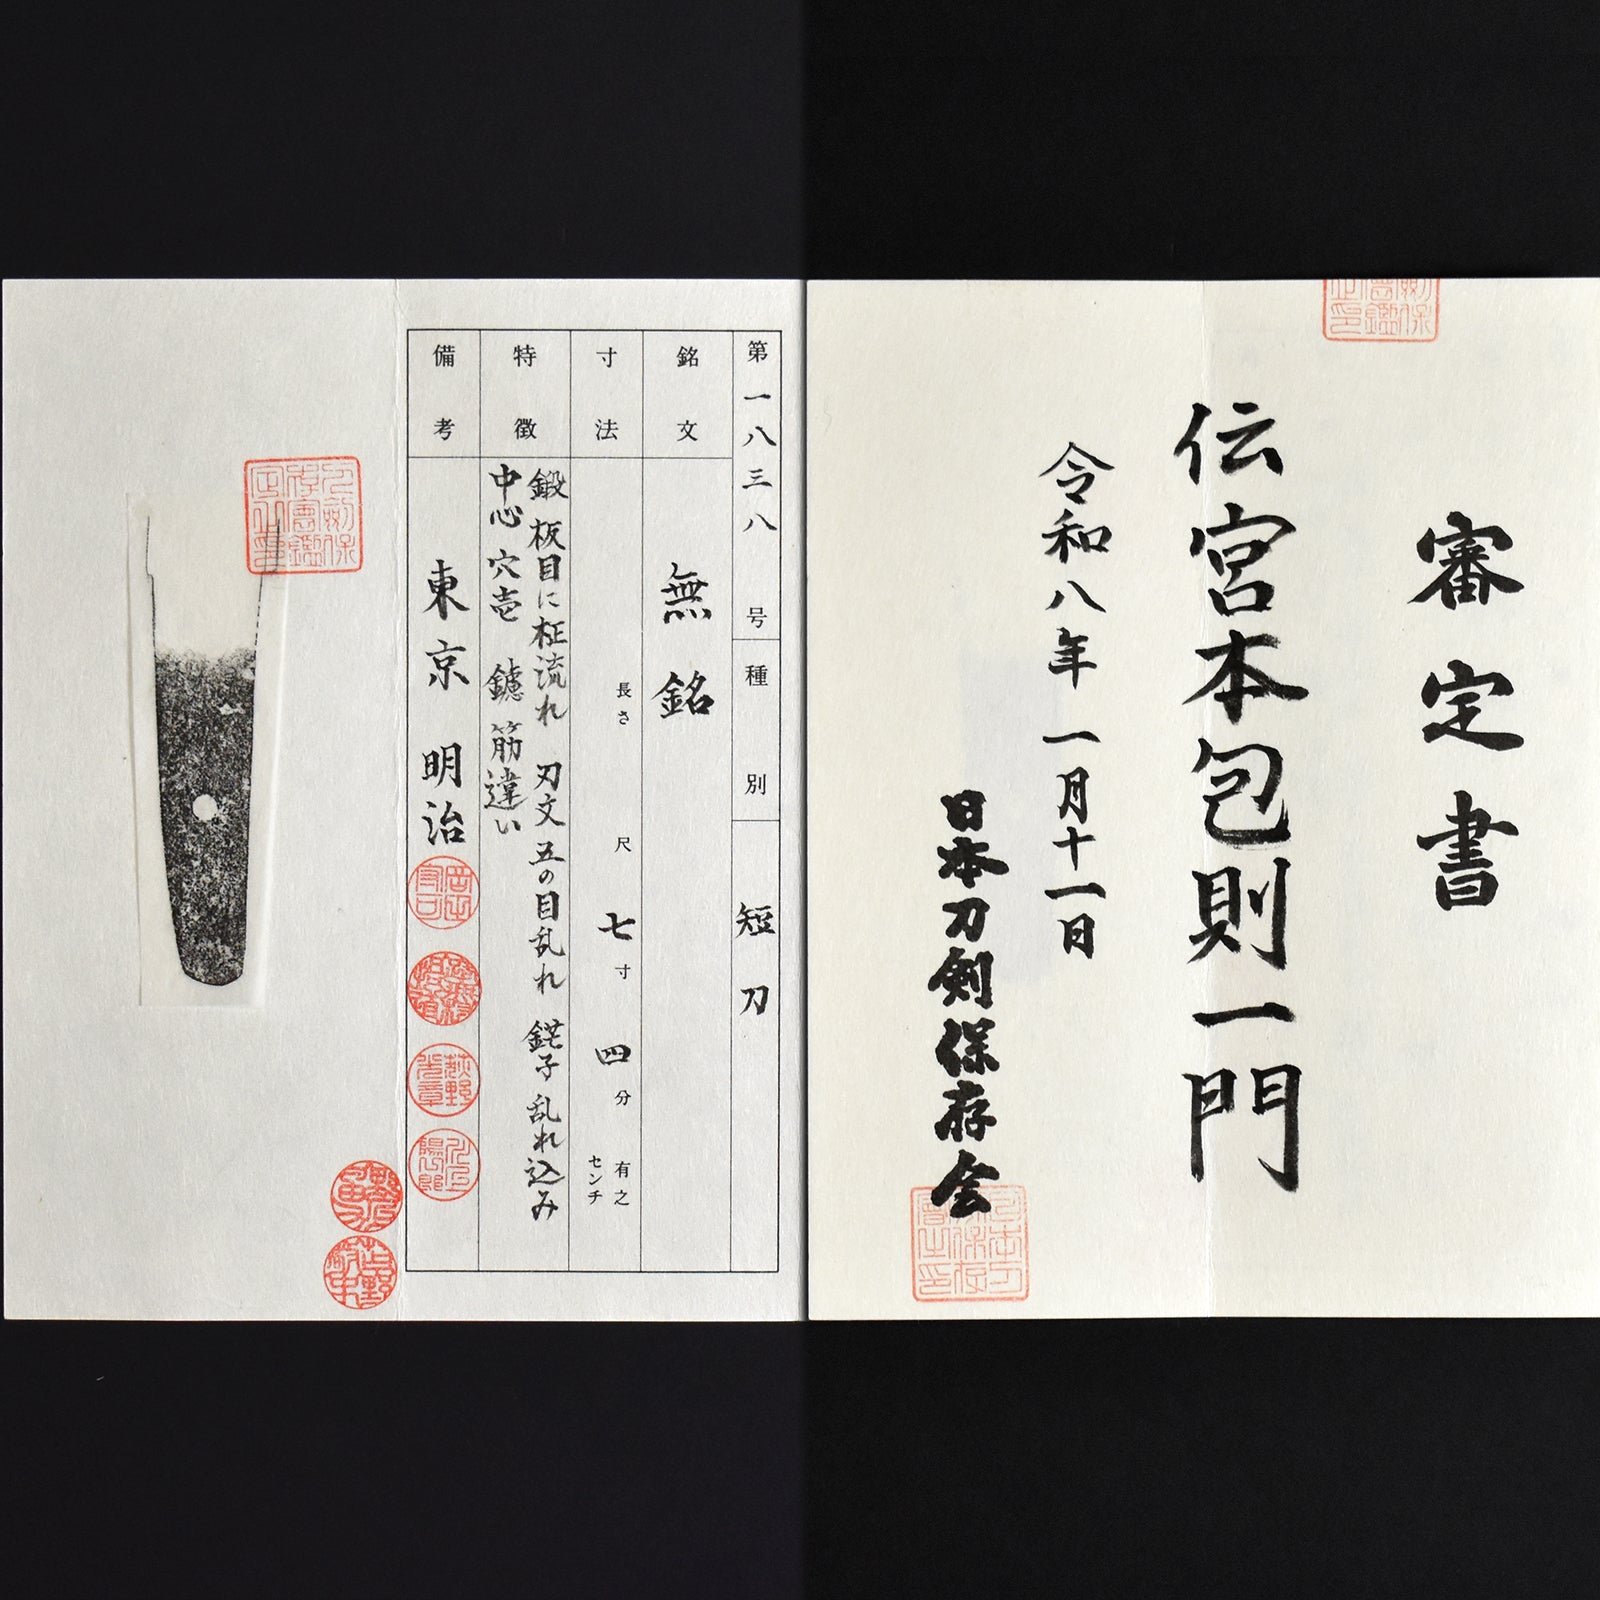 審定書
伝宮本包則一門
令和八年一月十一日
日本刀剣保存会
第一八三八号
種別
短刀
銘文
無銘
寸法
長さ 尺 七寸 四分 有之
センチ
特徴
鍛 板目に柾流れ 刃文 五の目乱れ 鋩子 乱れ込み
中心 穴壱 鑢 筋違い
備考
東京 明治